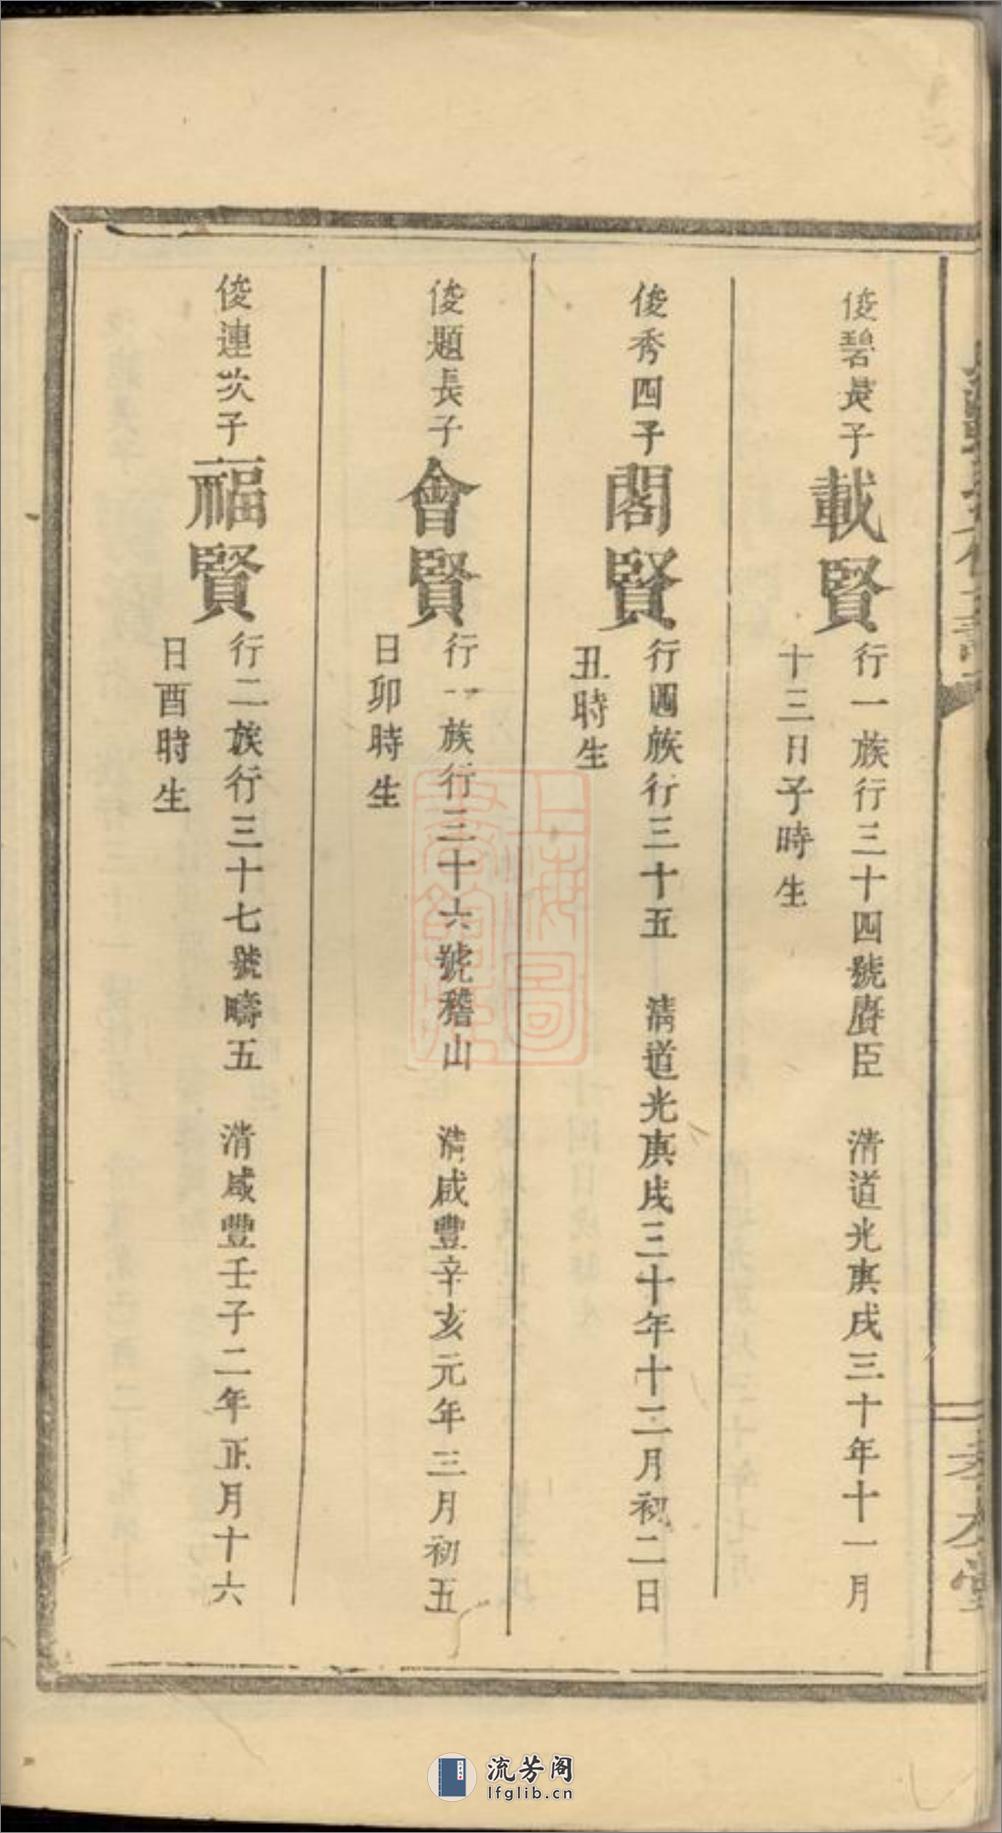 俊碧長子載賢行一族行三十四號賡臣　清道光庚戌三十年十一月
十三日子時生
俊秀四子閣賢行四族行三十五　清道光庚戌三十年十二月初二日
丑時生
俊題長子會賢行一族行三十六號稽山　清咸豐辛亥元年三月初五
日卯時生
俊連次子福賢行二族行三十七號疇五　清咸豐壬子二年正月十六
日酉時生
孝友堂
上海圖書館藏
流芳阁
lfglib.cn